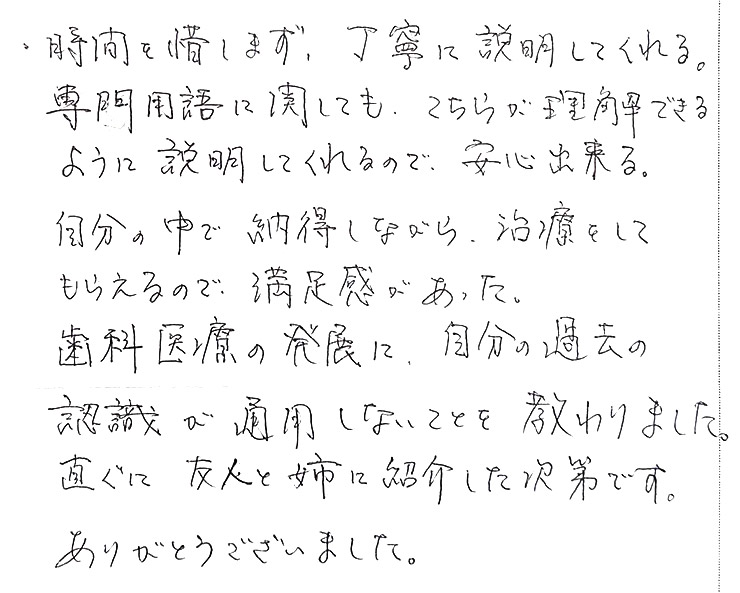 ・時間を惜します、丁寧に説明してくれる。
専門用語に関しても、こちらが理解できる
ように説明してくれるので、安心出来る。
自分の中で納得しながら、治療をして
もらえるので、満足感があった。
歯科医療の発展に、自分の過去の
認識が通用しないことを教わりました。
直ぐに友人と姉に紹介した次第です。
ありがとうございました。